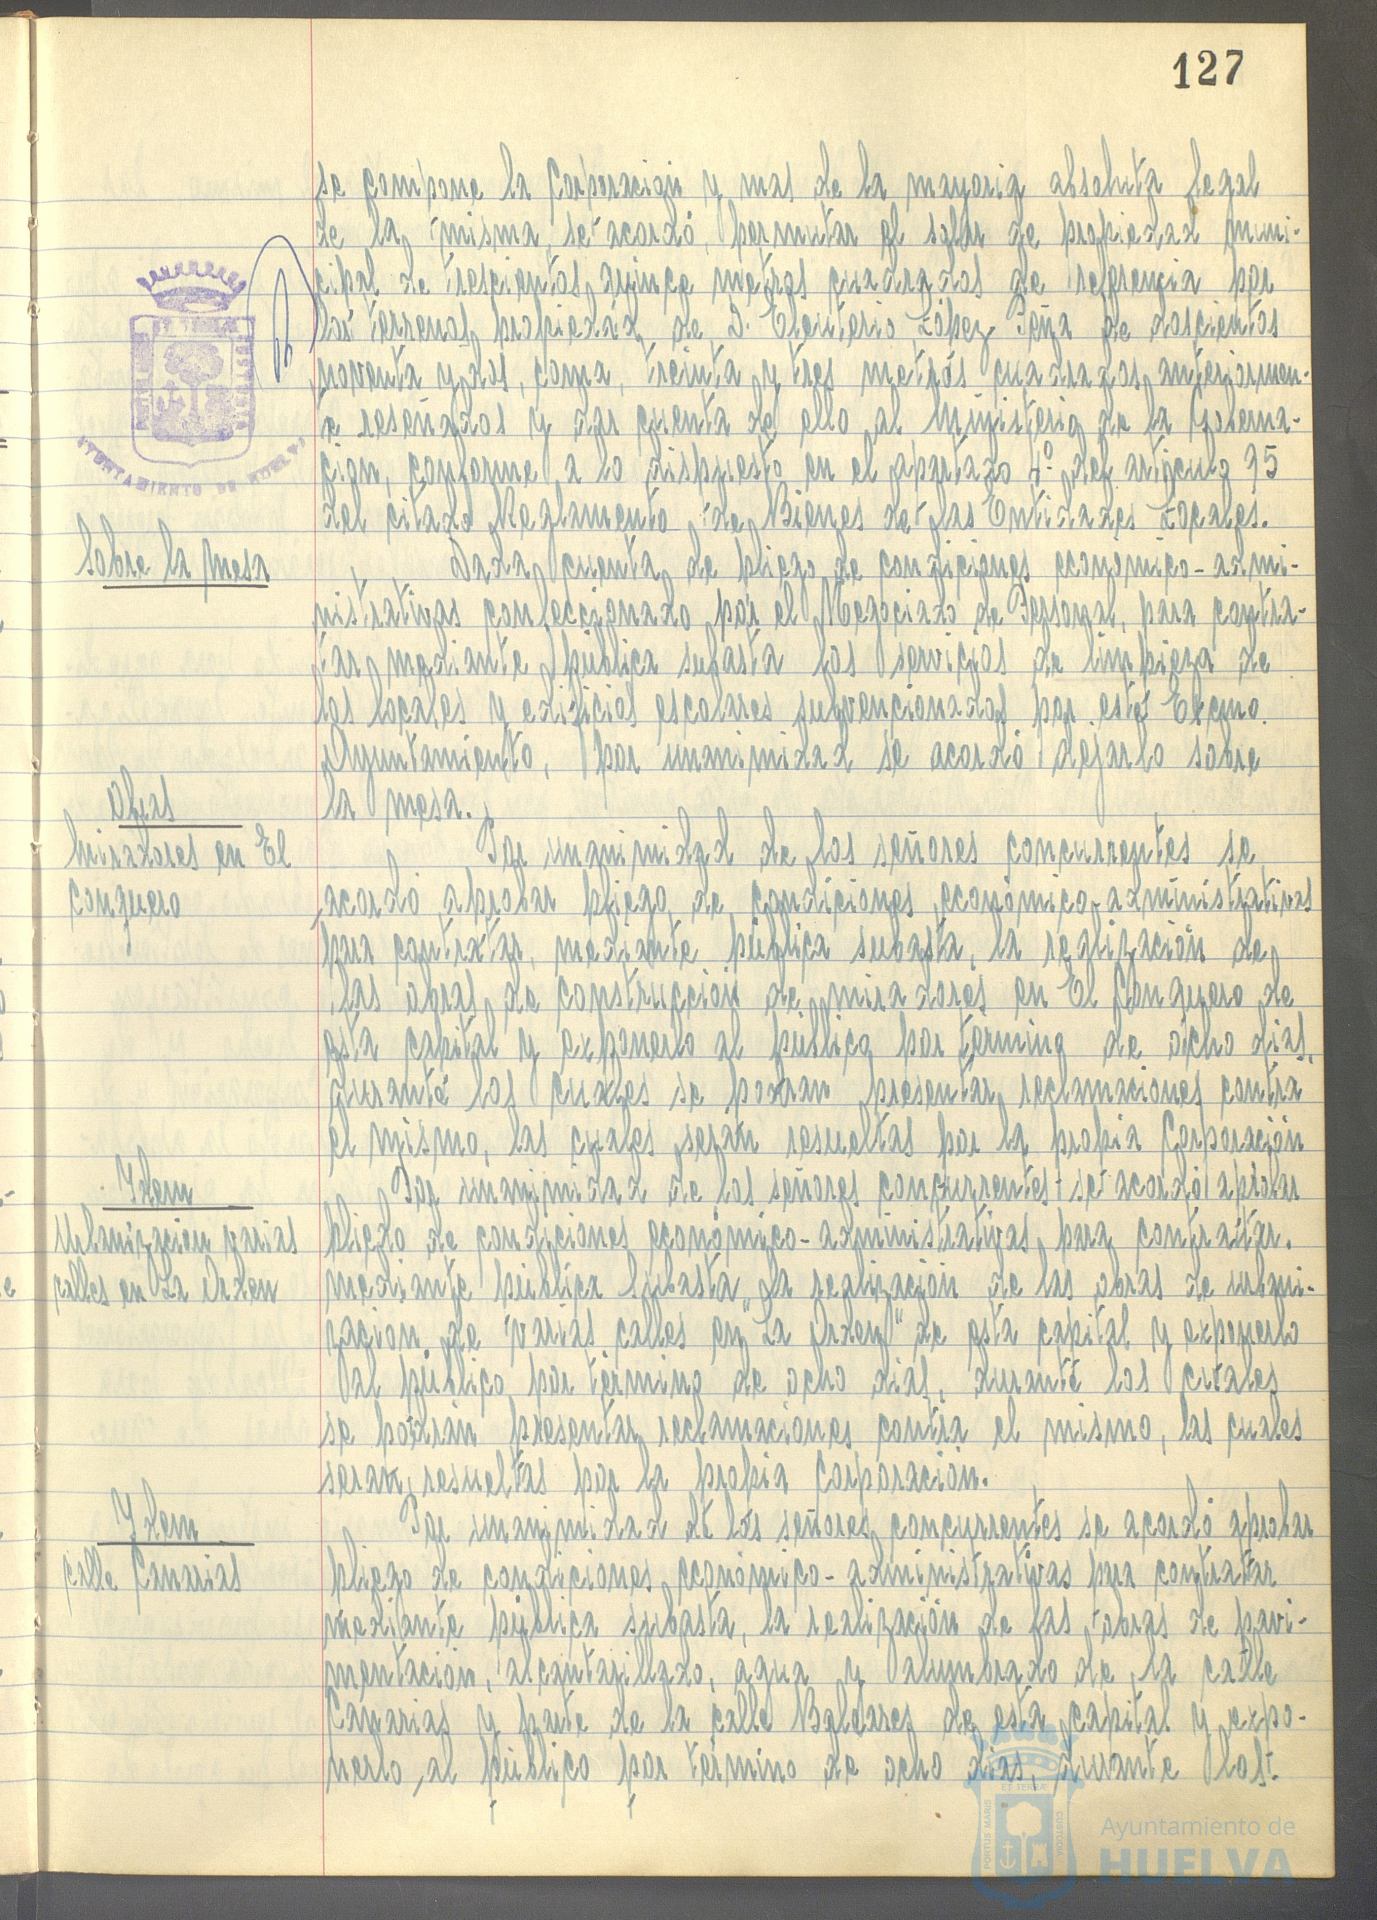 127
se compone la Corporación y mas de la mayoria absoluta legal
de la misma, se acordó, permutar el solar de propiedad muni-
cipal de trescientos quince metros cuadrados de referencia por
los terrenos propiedad de D. Eleuterio López Peña de doscientos
noventa y dos, coma, treinta y tres metros cuadrados anteriormen-
te reseñados y dar cuenta de ello al Ministerio de la Goberna-
ción, conforme a lo dispuesto en el apartado 4º del artículo 95
del citado Reglamento de Bienes de las Entidades Locales.
AYUNTAMIENTO DE HUELVA
Sobre la mesa
Dada cuenta de pliego de condiciones económico-admi-
nistrativas confeccionado por el Negociado de Personal, para contra-
tar mediante pública subasta los servicios de limpieza de
los locales y edificios escolares subvencionados por este Excmo.
Ayuntamiento, por unanimidad se acordó dejarlo sobre
la mesa.
Obras
Miradores en El
Conquero
Por unanimidad de los señores concurrentes se
acordó aprobar pliego de condiciones económico-administrativas
para contratar, mediante pública subasta, la realización de
las obras de construcción de miradores en El Conquero de
esta capital y exponerlo al público por termino de ocho dias,
durante los cuales se podran presentar reclamaciones contra
el mismo, las cuales seran resueltas por la propia Corporación
Ydem
Urbanizacion varias
calles en La Orden
Por unanimidad de los señores concurrentes se acordó aprobar
pliego de condiciones económico-administrativas para contratar.
mediante pública subasta, la realización de las obras de urbani-
zacion de varias calles en "La Orden" de esta capital y exponerlo
al público por término de ocho dias, durante los cuales
se podrán presentar reclamaciones contra el mismo, las cuales
seran resueltas por la propia Corporación.
Ydem
calle Canarias
Por unanimidad de los señores concurrentes se acordó aprobar
pliego de condiciones económico-administrativas para contratar
mediante pública subasta, la realización de las obras de pavi-
mentación, alcantarillado, agua y alumbrado de la calle
Canarias y parte de la calle Baleares de esta capital y expo-
nerlo, al público por término de ocho dias, durante los
PORTUS MARIS ET TERRAE CUSTODIA
Ayuntamiento de
HUELVA